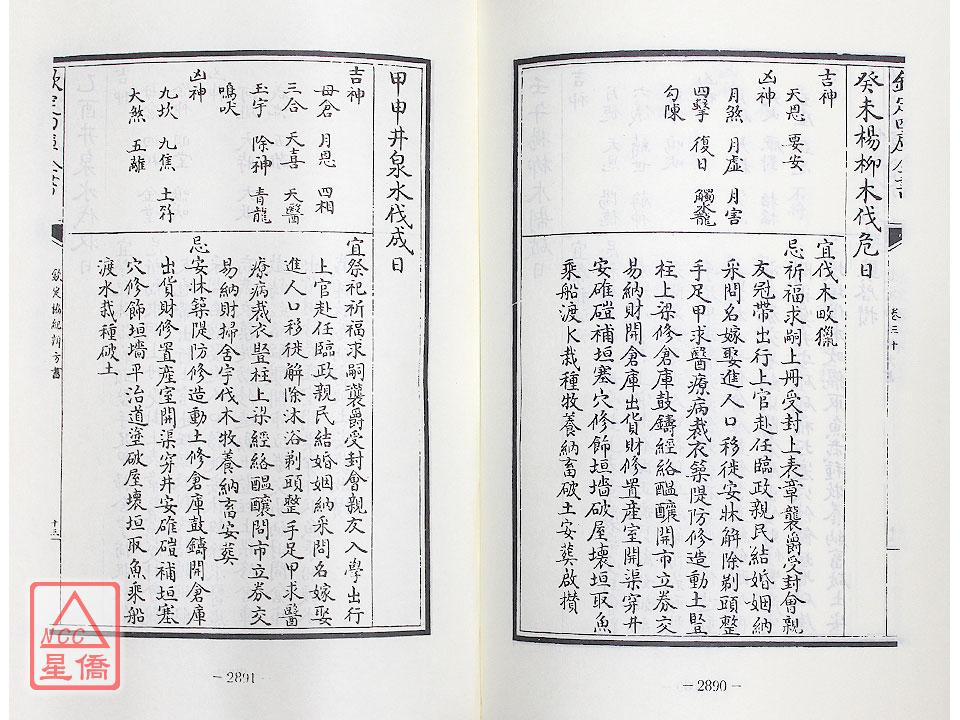 癸未楊柳木伐危日
吉神
天恩 要安
凶神
月煞 月虛 月害
四擊 復日 觸水龍
勾陳
宜伐木畋獵
忌祈福求嗣上冊受封上表章襲爵受封會親
友冠帶出行上官赴任臨政親民結婚姻納
采問名嫁娶進人口移徙安牀解除剃頭整
手足甲求醫療病裁衣築隄防修造動土豎
柱上梁修倉庫鼓鑄經絡醞釀開市立券交
易納財開倉庫出貨財修置産室開渠穿井
安碓磑補垣塞穴修飾垣墻破屋壞垣取魚
乘船渡水栽種牧養納畜破土安葬啟攢
卷三十
－2890－
甲申井泉水伐成日
吉神
母倉 月恩 四相
三合 天喜 天醫
玉宇 除神 青龍
鳴吠
凶神
九坎 九焦 土符
大煞 五離
宜祭祀祈福求嗣襲爵受封會親友入學出行
上官赴任臨政親民結婚姻納采問名嫁娶
進人口移徙解除沐浴剃頭整手足甲求醫
療病裁衣豎柱上梁經絡醞釀開市立券交
易納財掃舍宇伐木牧養納畜安葬
忌安牀築隄防修造動土修倉庫鼓鑄開倉庫
出貨財修置産室開渠穿井安碓磑補垣塞
穴修飾垣墻平治道塗破屋壞垣取魚乘船
渡水栽種破土
欽定協紀辨方書
十三
－2891－
NCC
星僑